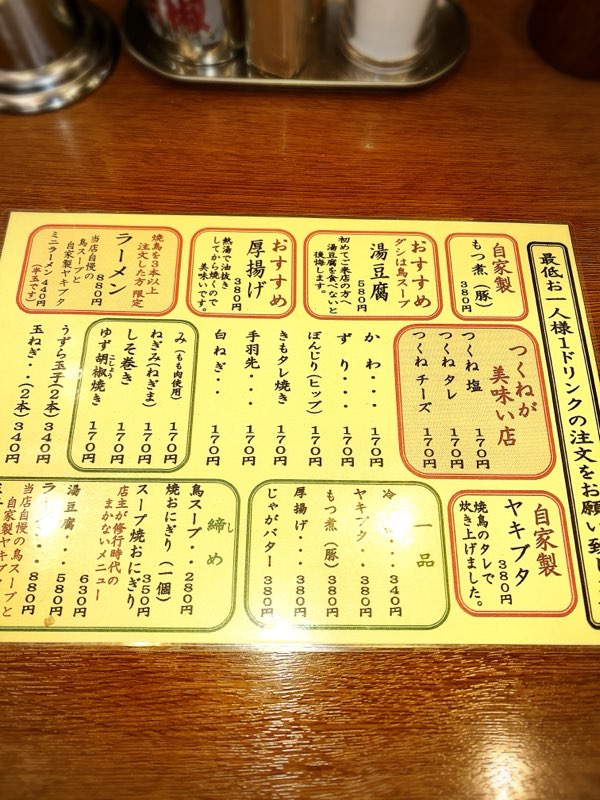 最低お一人様1ドリンクの注文をお願い致し
自家製
もつ煮（豚）
380円
おすすめ
ダシは鳥スープ
湯豆腐
580円
初めてご来店の方へ
湯豆腐を食べないと
後悔します。
おすすめ
厚揚げ
380円
熱湯で油抜き
してから焼くので
美味いです。
焼鳥を3本以上
注文した方限定
ラーメン
880円
当店自慢の
鳥スープと
自家製ヤキブタ
ミニラーメン440円
（半玉です）
つくねが
美味い店
つくね 塩 170円
つくね タレ 170円
つくね チーズ 170円
かわ・・・170円
ずり・・・170円
ぼんじり（ヒップ） 170円
きもタレ焼き 170円
手羽先・・170円
白ねぎ・・170円
み（もも肉使用） 170円
ねぎみ（ねぎま） 170円
しそ巻き 170円
ゆず胡椒焼き 170円
こしょう
うずら玉子（2本）340円
玉ねぎ・・（2本）340円
自家製
ヤキブタ
380円
焼鳥のタレで
炊き上げました。
一品
冷 340円
ヤキブタ・・380円
もつ煮（豚）380円
厚揚げ・・380円
じゃがバター 380円
締め
し
鳥スープ・・280円
焼おにぎり（一個） 350円
スープ焼おにぎり 630円
店主が修行時代の
まかないメニュー
湯豆腐・・580円
ラー 880円
当店自慢の鳥スープと
自家製ヤキブタ